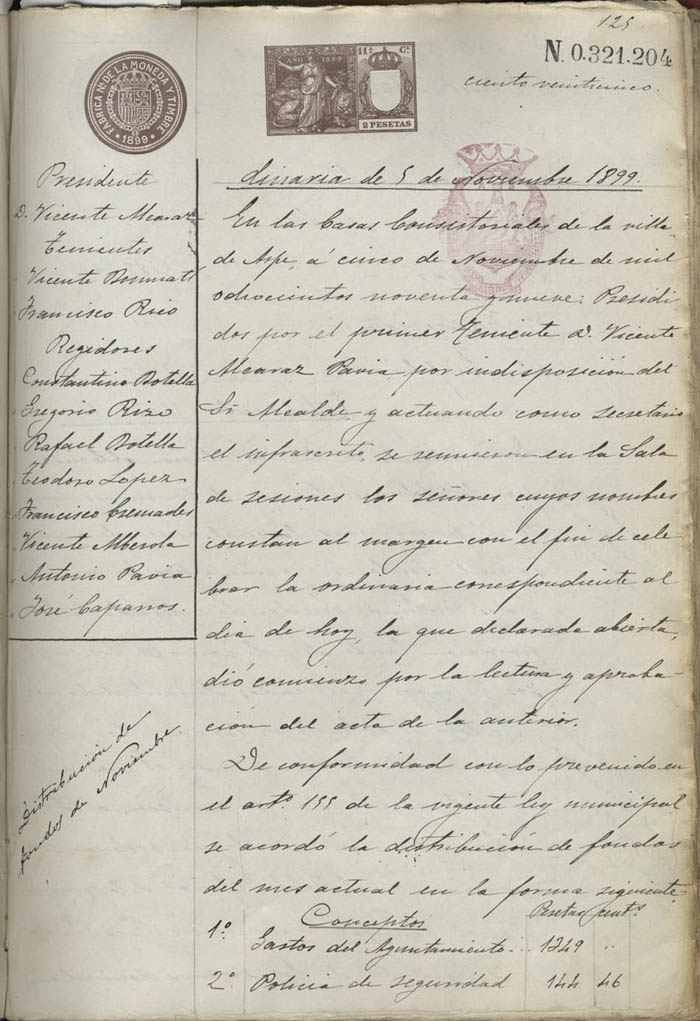 125
N. 0.321.204
ciento veinticinco.
FABRICA NL. DE LA MONEDA Y TIMBRE
1899
AÑO 1899
11ª Cª
2 PESETAS
Presidente
D. Vicente Alcaraz
Tenientes
Vicente Bonmatí
Francisco Rico
Regidores
Constantino Botella
Gregorio Rizo
Rafael Botella
Teodoro Lopez
Francisco Cremades
Vicente Alberola
Antonio Pavia
José Caparros.
Distribución de
fondos de Noviembre.
dinaria de 5 de Noviembre 1899.
En las Casas Consistoriales de la villa
de Aspe, á cinco de Noviembre de mil
ochocientos noventa y nueve: Presidi
dos por el primer Teniente D. Vicente
Alcaraz Pavia por indisposición del
Sr. Alcalde, y actuando como secretario
el infrascrito, se reunieron en la Sala
de sesiones los señores cuyos nombres
constan al margen con el fin de cele
brar la ordinaria correspondiente al
dia de hoy, la que declarada abierta,
dió comienzo por la lectura y aproba-
ción del acta de la anterior.
De conformidad con lo prevenido en
el artº. 155 de la vigente ley municipal
se acordó la distribución de fondos
del mes actual en la forma siguiente.
Conceptos Pesetas cents.
1º. Gastos del Ayuntamiento... 1349 "
2º. Policia de seguridad 144 46